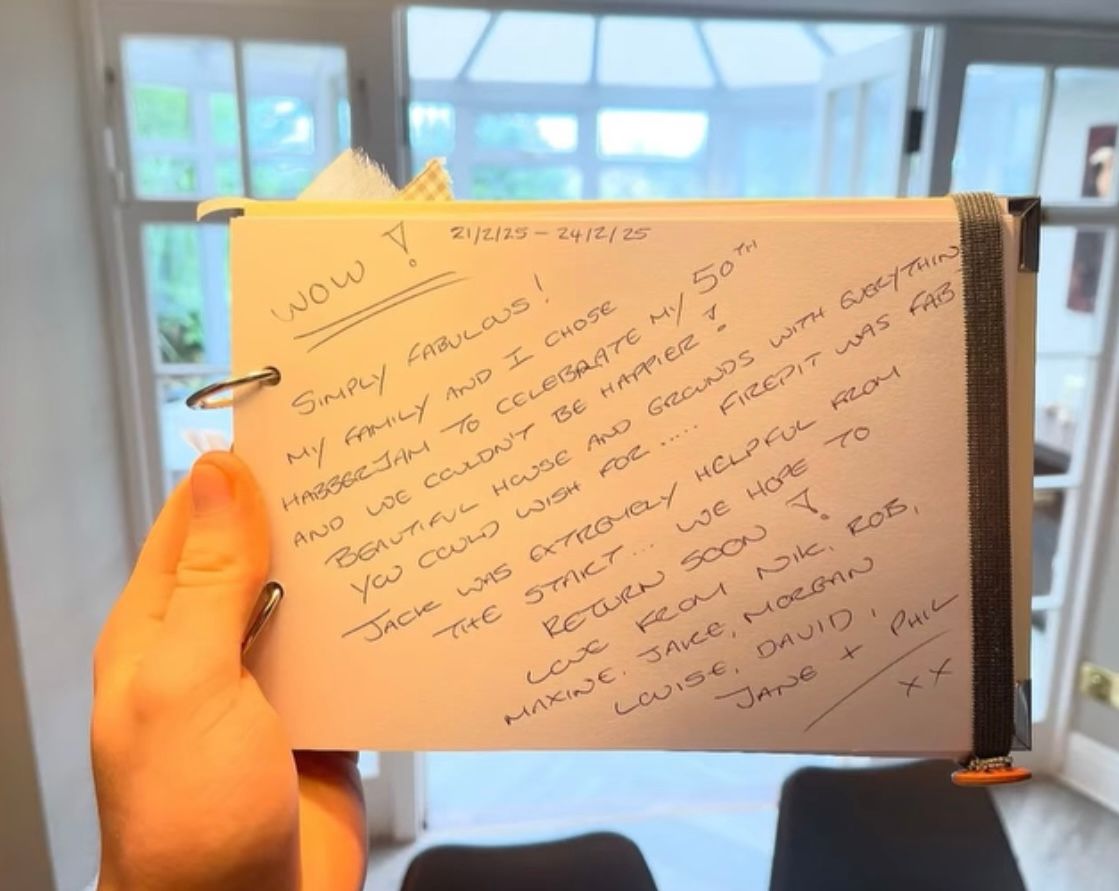 21/2/25 - 24/2/25
WOW!
SIMPLY FABULOUS!
MY FAMILY AND I CHOSE
HABBERJAM TO CELEBRATE MY 50TH
AND WE COULDN'T BE HAPPIER!
BEAUTIFUL HOUSE AND GROUNDS WITH EVERYTHIN
YOU COULD WISH FOR..... FIREPIT WAS FAB
JACK WAS EXTREMELY HELPFUL FROM
THE START... WE HOPE TO
RETURN SOON!
LOVE FROM NIK, ROB,
MAXINE, JAKE, MORGAN
LOUISE, DAVID,
JANE + PHIL
XX